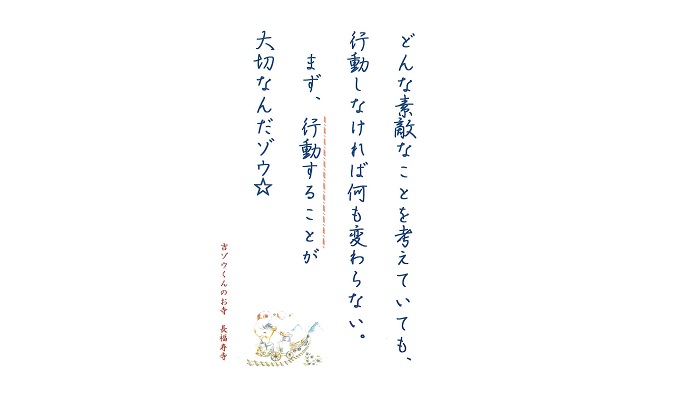 どんな素敵なことを考えていても、
行動しなければ何も変わらない。
まず、行動することが
大切なんだゾウ☆
吉ゾウくんのお寺 長福寿寺